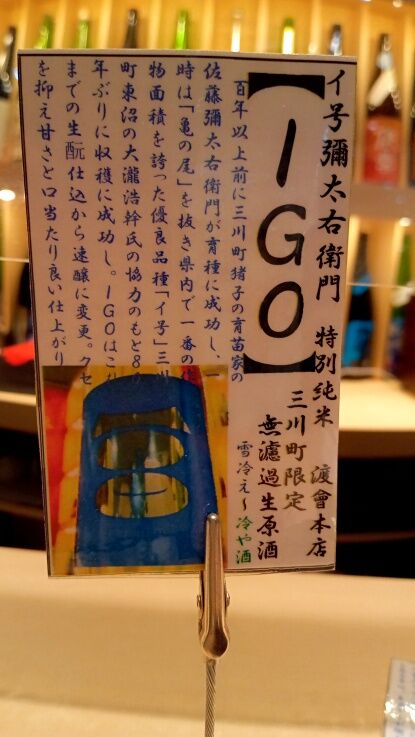 イ号彌太右衛門 特別純米 渡會本店
【IGO】
三川町限定
無濾過生原酒
雪冷え～冷や酒
百年以上前に三川町猪子の育苗家の
佐藤彌太右衛門が育種に成功し、一
時は「亀の尾」を抜き県内で一番の作
物面積を誇った優良品種「イ号」三川
町東沼の大瀧浩幹氏の協力のもと80
年ぶりに収穫に成功し。IGOはこ
までの生酛仕込から速醸に変更。クセ
を抑え甘さと口当たり良い仕上がり